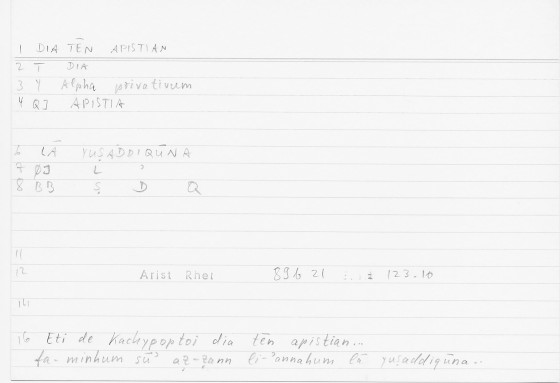 1 DIA TĒN APISTIAN
2 T DIA
3 Y Alpha privativum
4 QJ APISTIA
6 LĀ YUṢADDIQŪNA
7 ØJ L ʾ
8 BB Ṣ D Q
11
12 Arist Rhet 89b 21 :..: 123.10
14
16 Eti de Kachypoptoi dia tēn apistian...
fa-minhum sūʾ aẓ-ẓann li-ʾannahum lā yuṣaddiqūna..